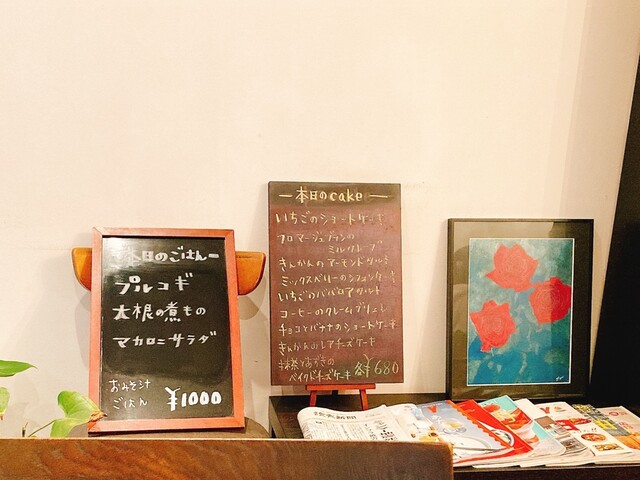 本日のごはん
プルコギ
大根の煮もの
マカロニサラダ
おみそ汁
ごはん
¥1000
本日のcake
いちごのショートケーキ
フロマージュブランの
ミルクレープ
きんかんのアーモンドタルト
ミックスベリーのシフォンケーキ
いちごのババロアタルト
コーヒーのクレームブリュレ
チョコとバナナのショートケーキ
きんかんのレアチーズケーキ
抹茶とあずきの
ベイクドチーズケーキ 各¥680